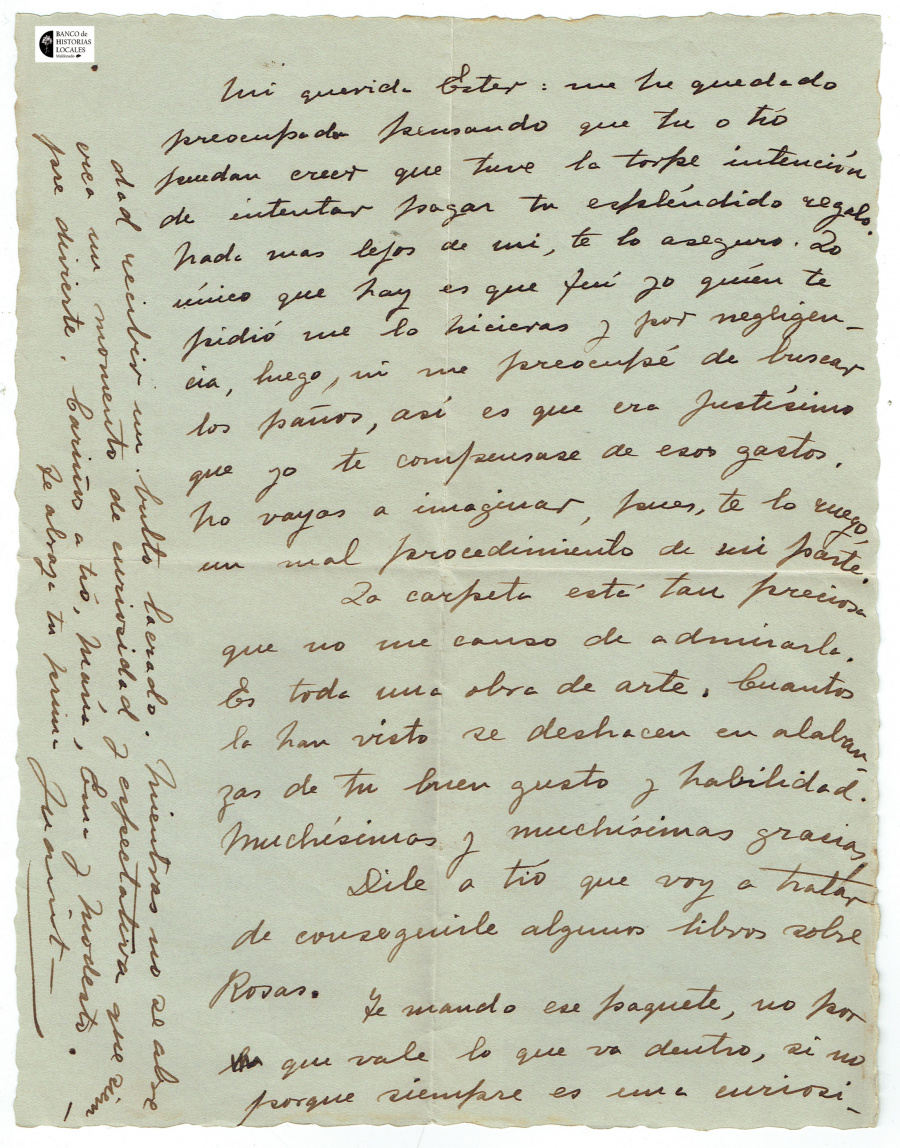 BANCO de
HISTORIAS
LOCALES
Maldonado
Mi querida Ester: me he quedado
preocupada pensando que tu o tío
puedan creer que tuve la torpe intención
de intentar pagar tu espléndido regalo.
Nada mas lejos de mi, te lo aseguro. Lo
único que hay es que fuí yo quién te
pidió me la hicieras y por negligen-
cia, luego, ni me preocupé de buscar
los paños, así es que era justísimo
que yo te compensase de esos gastos.
No vayas a imaginar, pues, te lo ruego,
un mal procedimiento de mi parte.
La carpeta está tan preciosa
que no me canso de admirarla.
Es toda una obra de arte. Cuantos
la han visto se deshacen en alaban-
zas de tu buen gusto y habilidad.
Muchísimas y muchísimas gracias.
Dile a tío que voy a tratar
de conseguirle algunos libros sobre
Rosas.
Te mando ese paquete, no por
que vale lo que va dentro, si no
porque siempre es una curiosi-
dad recibir un bulto lacrado. Mientras no se abre
un momento de curiosidad y espectativa que siem-
pre divierte. Cariños a tío, María, Ema y Modesto.
Te abraza tu prima